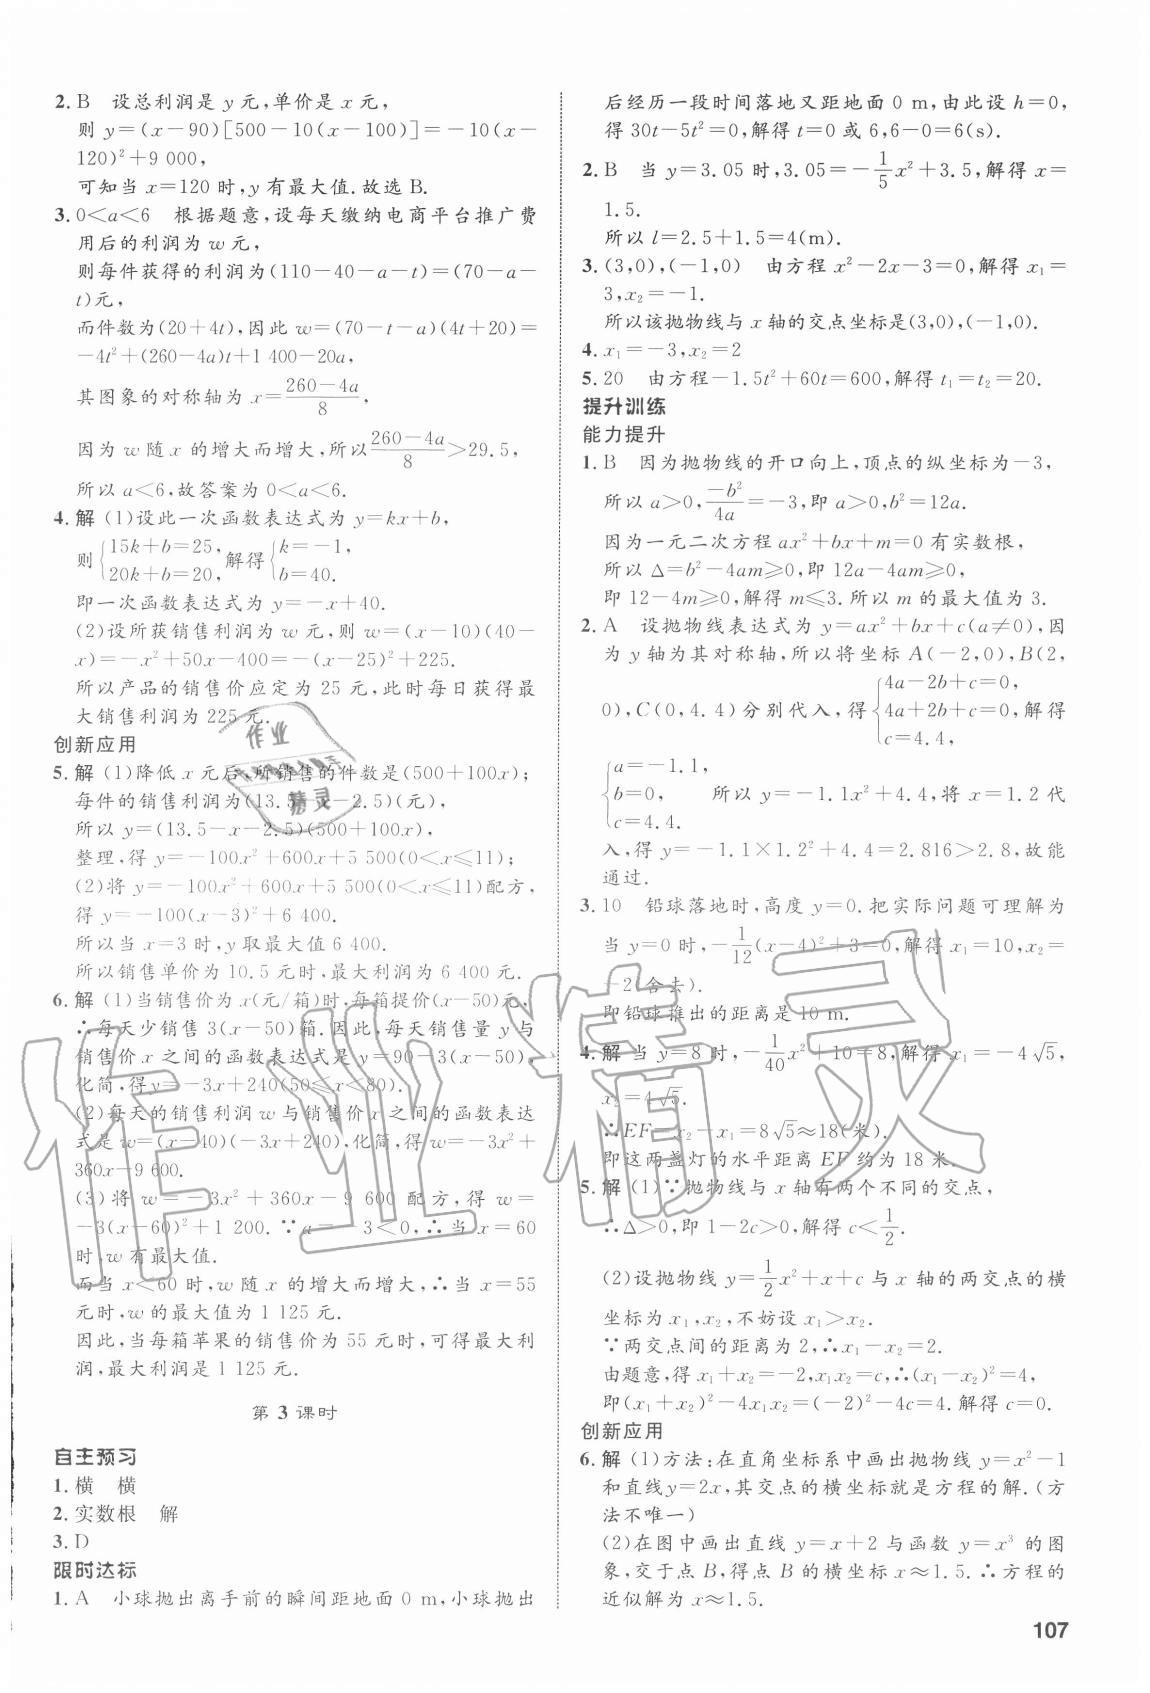 2. B　设总利润是 y 元,单价是 x 元,
则 y=(x-90)[500-10(x-100)]=-10(x-
120)²+9 000,
可知当 x=120 时,y 有最大值.故选 B.
3. 0<a<6　根据题意,设每天缴纳电商平台推广费
用后的利润为 w 元,
则每件获得的利润为(110-40-a-t)=(70-a-
t)元,
而件数为(20+4t),因此 w=(70-t-a)(4t+20)=
-4t²+(260-4a)t+1 400-20a,
其图象的对称轴为 x=\frac{260-4a}{8},
因为 w 随 x 的增大而增大,所以\frac{260-4a}{8}>29.5,
所以 a<6,故答案为 0<a<6.
4. 解 (1)设此一次函数表达式为 y=kx+b,
则{15k+b=25, 20k+b=20, 解得{k=-1, b=40.
即一次函数表达式为 y=-x+40.
(2)设所获销售利润为 w 元,则 w=(x-10)(40-
x)=-x²+50x-400=-(x-25)²+225.
所以产品的销售价应定为 25 元,此时每日获得最
大销售利润为 225 元.
创新应用
5. 解 (1)降低 x 元后,所销售的件数是(500+100x);
每件的销售利润为(13.5-x-2.5)(元),
所以 y=(13.5-x-2.5)(500+100x),
整理,得 y=-100x²+600x+5 500(0<x≤11);
(2)将 y=-100x²+600x+5 500(0<x≤11)配方,
得 y=-100(x-3)²+6 400.
所以当 x=3 时,y 取最大值 6 400.
所以销售单价为 10.5 元时,最大利润为 6 400 元.
6. 解 (1)当销售价为 x(元/箱)时,每箱提价(x-50)元,
∴每天少销售 3(x-50)箱.因此,每天销售量 y 与
销售价 x 之间的函数表达式是 y=90-3(x-50),
化简,得 y=-3x+240(50≤x≤80).
(2)每天的销售利润 w 与销售价 x 之间的函数表达
式是 w=(x-40)(-3x+240),化简,得 w=-3x²+
360x-9 600.
(3)将 w=-3x²+360x-9 600 配方,得 w=
-3(x-60)²+1 200.∵a=-3<0,∴当 x=60
时,w 有最大值.
而当 x<60 时,w 随 x 的增大而增大,∴当 x=55
元时,w 的最大值为 1 125 元.
因此,当每箱苹果的销售价为 55 元时,可得最大利
润,最大利润是 1 125 元.
第 3 课时
自主预习
1. 横　横
2. 实数根　解
3. D
限时达标
1. A　小球抛出离手前的瞬间距地面 0 m,小球抛出
后经历一段时间落地又距地面 0 m,由此设 h=0,
得 30t-5t²=0,解得 t=0 或 6,6-0=6(s).
2. B　当 y=3.05 时,3.05=-\frac{1}{5}x²+3.5,解得 x=
1.5.
所以 l=2.5+1.5=4(m).
3. (3,0),(-1,0)　由方程 x²-2x-3=0,解得 x₁=
3,x₂=-1.
所以该抛物线与 x 轴的交点坐标是(3,0),(-1,0).
4. x₁=-3,x₂=2
5. 20　由方程-1.5t²+60t=600,解得 t₁=t₂=20.
提升训练
能力提升
1. B　因为抛物线的开口向上,顶点的纵坐标为-3,
所以 a>0,\frac{-b²}{4a}=-3,即 a>0,b²=12a.
因为一元二次方程 ax²+bx+m=0 有实数根,
所以 Δ=b²-4am≥0,即 12a-4am≥0,
即 12-4m≥0,解得 m≤3.所以 m 的最大值为 3.
2. A　设抛物线表达式为 y=ax²+bx+c(a≠0),因
为 y 轴为其对称轴,所以将坐标 A(-2,0),B(2,
0),C(0,4.4)分别代入,得{4a-2b+c=0, 4a+2b+c=0, c=4.4, 解得
{a=-1.1, b=0, c=4.4. 所以 y=-1.1x²+4.4,将 x=1.2 代
入,得 y=-1.1×1.2²+4.4=2.816>2.8,故能
通过.
3. 10　铅球落地时,高度 y=0.把实际问题可理解为
当 y=0 时,-\frac{1}{12}(x-4)²+3=0,解得 x₁=10,x₂=
-2(舍去).
即铅球推出的距离是 10 m.
4. 解 当 y=8 时,-\frac{1}{40}x²+10=8,解得 x₁=-4√5,
x₂=4√5.
∴EF=x₂-x₁=8√5≈18(米).
即这两盏灯的水平距离 EF 约为 18 米.
5. 解 (1)∵抛物线与 x 轴有两个不同的交点,
∴Δ>0,即 1-2c>0,解得 c<\frac{1}{2}.
(2)设抛物线 y=\frac{1}{2}x²+x+c 与 x 轴的两交点的横
坐标为 x₁,x₂,不妨设 x₁>x₂.
∵两交点间的距离为 2,∴x₁-x₂=2.
由题意,得 x₁+x₂=-2,x₁x₂=c,∴(x₁-x₂)²=4,
即(x₁+x₂)²-4x₁x₂=(-2)²-4c=4.解得 c=0.
创新应用
6. 解 (1)方法:在直角坐标系中画出抛物线 y=x²-1
和直线 y=2x,其交点的横坐标就是方程的解.(方
法不唯一)
(2)在图中画出直线 y=x+2 与函数 y=x³ 的图
象,交于点 B,得点 B 的横坐标 x≈1.5.∴方程的
近似解为 x≈1.5.
107
作业
精灵
作业精灵